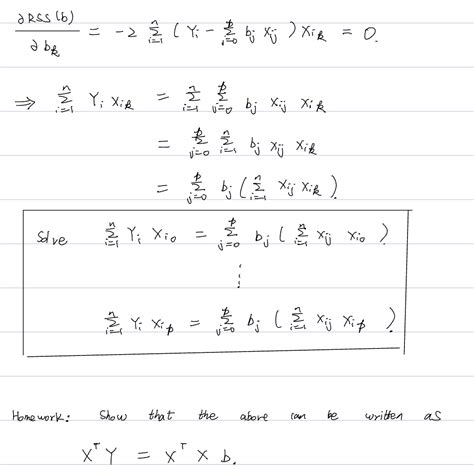 ∂RSS(b)/∂b_k = -2 Σ_{i=1}^{n} (Y_i - Σ_{j=0}^{p} b_j x_{ij}) x_{ik} = 0.
⇒ Σ_{i=1}^{n} Y_i x_{ik} = Σ_{i=1}^{n} Σ_{j=0}^{p} b_j x_{ij} x_{ik}
= Σ_{j=0}^{p} Σ_{i=1}^{n} b_j x_{ij} x_{ik}
= Σ_{j=0}^{p} b_j (Σ_{i=1}^{n} x_{ij} x_{ik}).
Solve Σ_{i=1}^{n} Y_i x_{i0} = Σ_{j=0}^{p} b_j (Σ_{i=1}^{n} x_{ij} x_{i0}).
⋮
Σ_{i=1}^{n} Y_i x_{ip} = Σ_{j=0}^{p} b_j (Σ_{i=1}^{n} x_{ij} x_{ip}).
Homework: Show that the above can be written as
X^T Y = X^T X b.